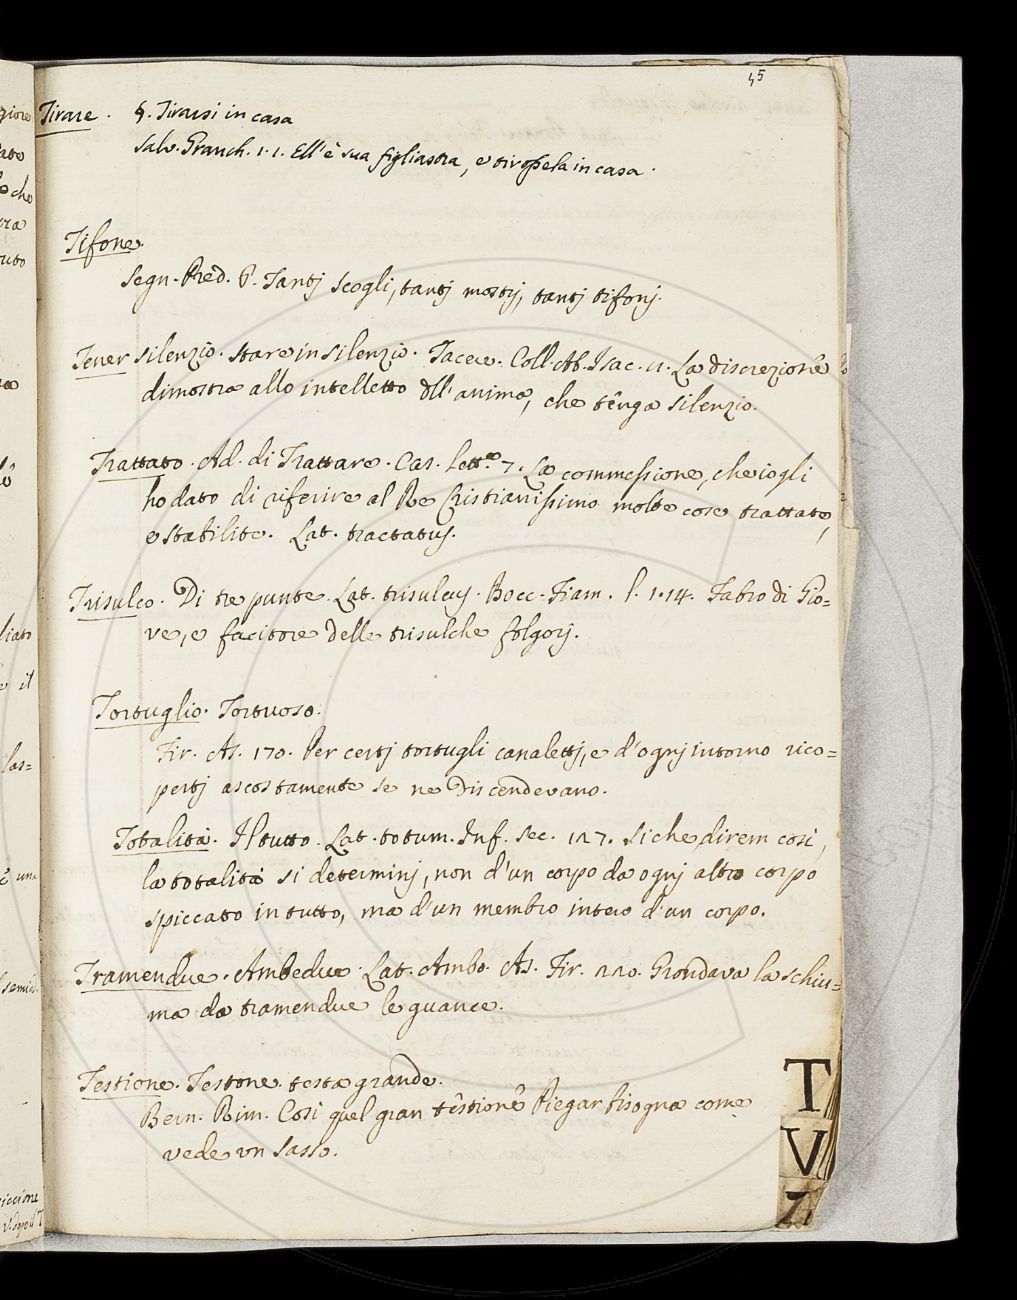 45
Tirare. §. Tirarsi in casa
Salv. Granch. 1. 1. Ell'è sua figliastra, e tirossela in casa.
Tifone.
Segn. Pred. 8. Tantj scogli, tantj mostrj, tantj tifonj.
Tener silenzio. Stare in silenzio. Tacere. Coll. Ab. Isac. 11. La discrezione
dimostra allo intelletto dll'anima, che tenga silenzio.
Trattato. Ad. di Trattare. Cas. lett. 7. La commessione, che io gli
ho dato di riferire al Re Cristianissimo molte cose trattate,
e stabilite. Lat. tractatus.
Trisulco. Di tre punte. Lat. trisulcus. Bocc. Fiam. l. 1. 14. Fabro di Gio=
ve, e facitore delle trisulche folgorj.
Tortuglio. Tortuoso.
Fir. As. 170. Per certj tortugli canalettj, e d'ognj intorno rico=
pertj ascostamente se ne discendevano.
Totalità. Il tutto. Lat. totum. Inf. sec. 127. Si che direm così,
la totalità si determinj, non d'un corpo da ognj altro corpo
spiccato in tutto, ma d'un membro intero d'un corpo.
Tramendue. Ambedue. Lat. Ambo. As. Fir. 220. Grondava la schiu=
ma da tramendue le guance.
Testione. Testone. testa grande.
Bern. Rim. Così quel gran testione Piegar bisogna come
vede un sasso.
T
V
Z